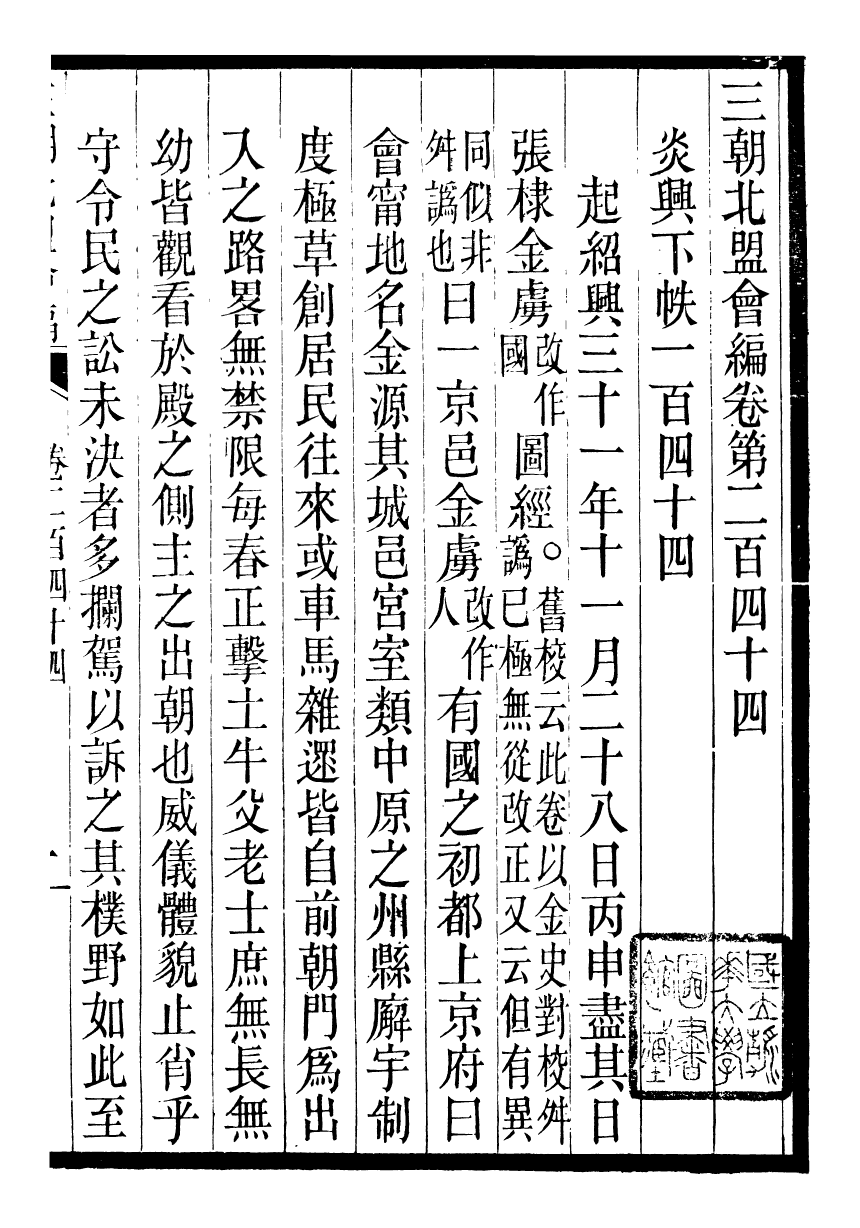 三朝北盟會編卷第二百四十四
炎興下帙一百四十四
起紹興三十一年十一月二十八日丙申盡其日
張棣金虜改作國圖經○舊校云此卷以金史對校舛譌已極無從改正又云但有異
同似非舛譌也曰一京邑金虜改作人有國之初都上京府曰
會甯地名金源其城邑宮室類中原之州縣廨宇制
度極草創居民往來或車馬雜遝皆自前朝門爲出
入之路畧無禁限每春正擊土牛父老士庶無長無
幼皆觀看於殿之側主之出朝也威儀體貌止肖乎
守令民之訟未決者多攔駕以訴之其樸野如此至
卷二百四十四
一